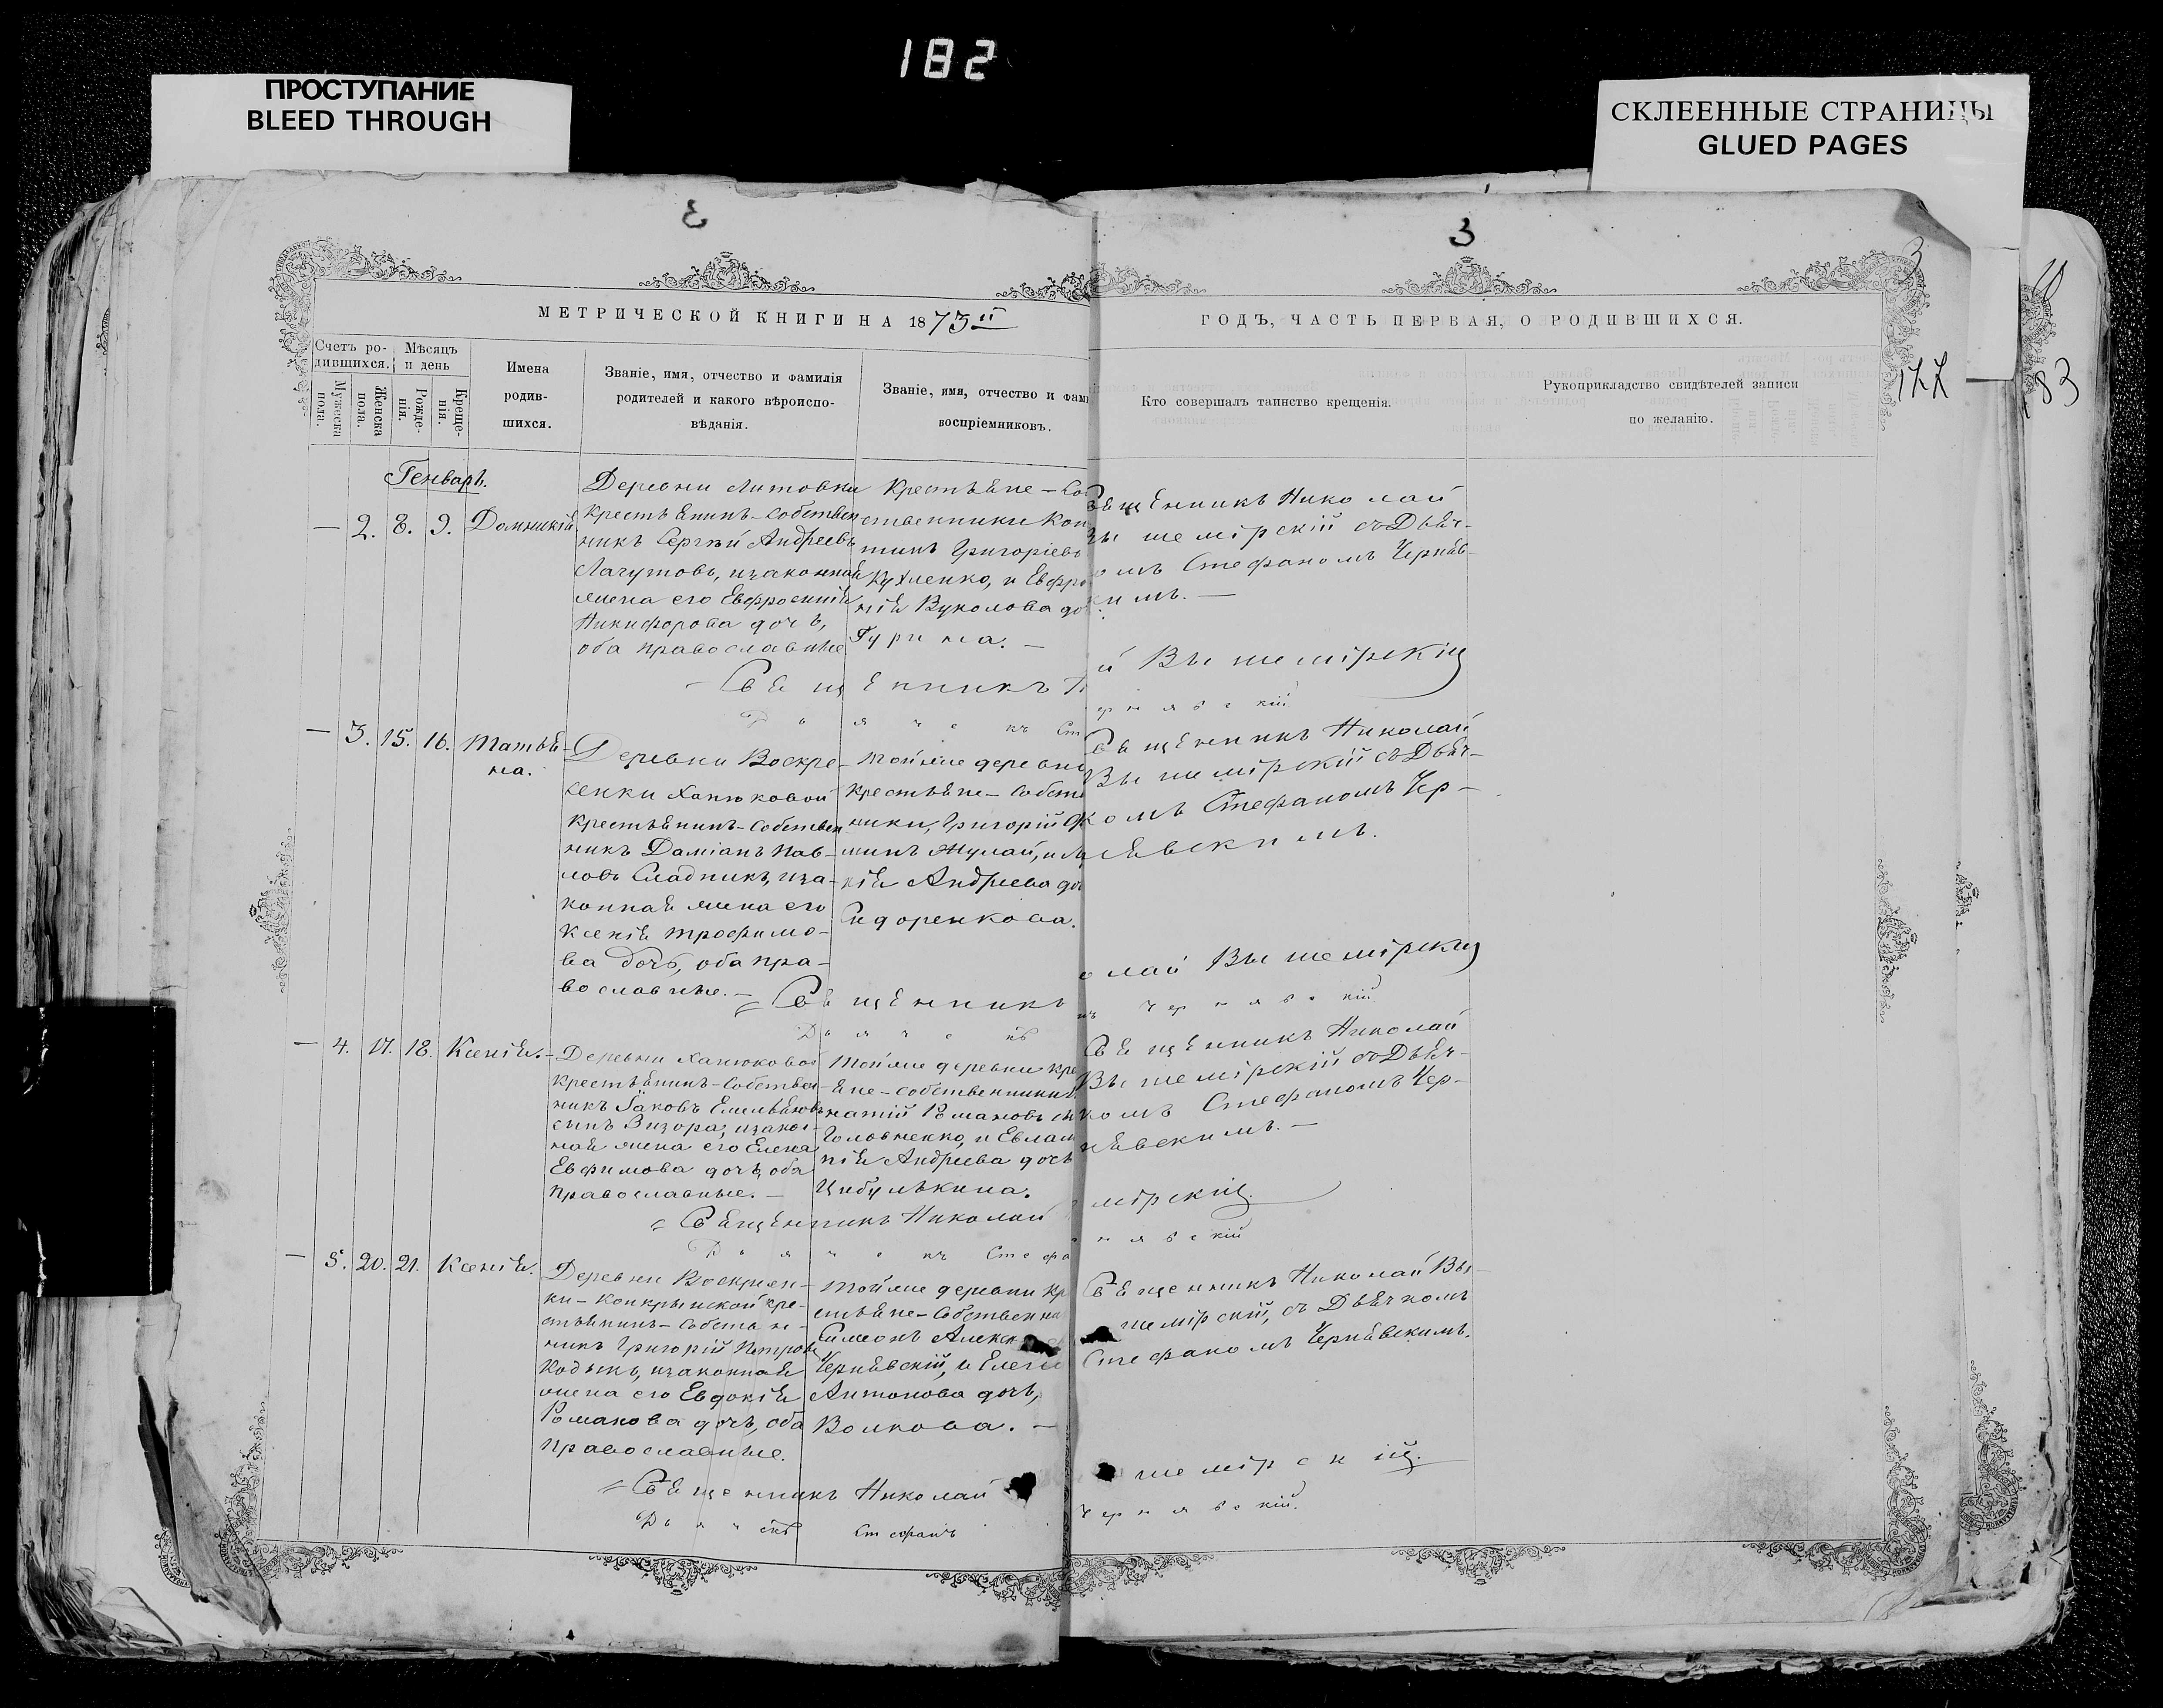 182
ПРОСТУПАНИЕ
BLEED THROUGH
СКЛЕЕННЫЕ СТРАНИЦЫ
GLUED PAGES
3
3
177
83
МЕТРИЧЕСКОЙ КНИГИ НА 1873й
ГОДЪ, ЧАСТЬ ПЕРВАЯ, О РОДИВШИХСЯ.
Счетъ ро-
дившихся.
Мужеска
пола.
Женска
пола.
Мѣсяцъ
и день
Рожде-
нія.
Креще-
нія.
Имена
родив-
шихся.
Званіе, имя, отчество и фамилія
родителей и какого вѣроиспо-
вѣданія.
Званіе, имя, отчество и фам
воспріемниковъ.
Кто совершалъ таинство крещенія.
Рукоприкладство свидѣтелей записи
по желанію.
Генварь.
— 2. 8. 9. Домникій
Деревни Литовки
крестьянинъ-собствен
никъ Сергѣй Андреевъ
Лагутовъ, и законная
жена его Евфросинія
Никифорова дочь,
оба православные
Крестьяне-Соб
ственники Кон
тинъ Григоріевъ
Кухленко, и Евфро
нія Вуколова до
Гурина. —
Священникъ Николай
шемірскій съ Дьяч-
омъ Стефаномъ Черняв-
кимъ. —
Священникъ
й Вышемірскій
Дьячекъ Ст
чернявскій
— 3. 15. 16. Татья-
на.
Деревни Воскре-
сенки Ханюковой
крестьянинъ-Собствен
никъ Даміанъ Пав-
ловъ Сладникъ, и за-
конная жена его
Ксенія Трофимо-
ва дочь, оба пра-
вославные. —
Той же деревни
крестьяне-Собств
ники, Григорій
минъ Жулай, и
кія Андреева дочь
Сидоренкова.
Священникъ Николай
Вышемірскій съ Дьяч-
комъ Стефаномъ Чер-
нявскимъ.
Священникъ
олай Вышемірскій
Дьячекъ
Чернявскій
— 4. 17. 18. Ксенія. —
Деревни Ханюковой
крестьянинъ-Собствен-
никъ Іаковъ Емельяновъ
сынъ Визора, и закон-
ная жена его Елена
Евфимова дочь, оба
православные. —
Той же деревни кре
яне-собственники,
натій Романовъ
Головненко, и Евлам
пія Андреева дочь
Цибулькина.
Священникъ Николай
Вышемірскій съ Дьяч-
комъ Стефаномъ Чер-
нявскимъ. —
Священникъ Николай
мірскій.
Дьячекъ Стефа
нявскій
— 5. 20. 21. Ксенія.
Деревни Воскресен-
ки-Конкрынской кре-
стьянинъ-Собствен-
никъ Григорій Петровъ
и законная
жена его Евдокія
Романова дочь, оба
православные.
Той же деревни кр
стьяне-Собственни
Симеонъ Алекс
Чернявскій, и Елена
Антонова дочь,
Волкова. —
Священникъ Николай Вы-
шемірскій, съ Дьячкомъ
Стефаномъ Чернявскимъ.
Священникъ Николай
шемірскій.
Дьячекъ Стефанъ
Чернявскій.